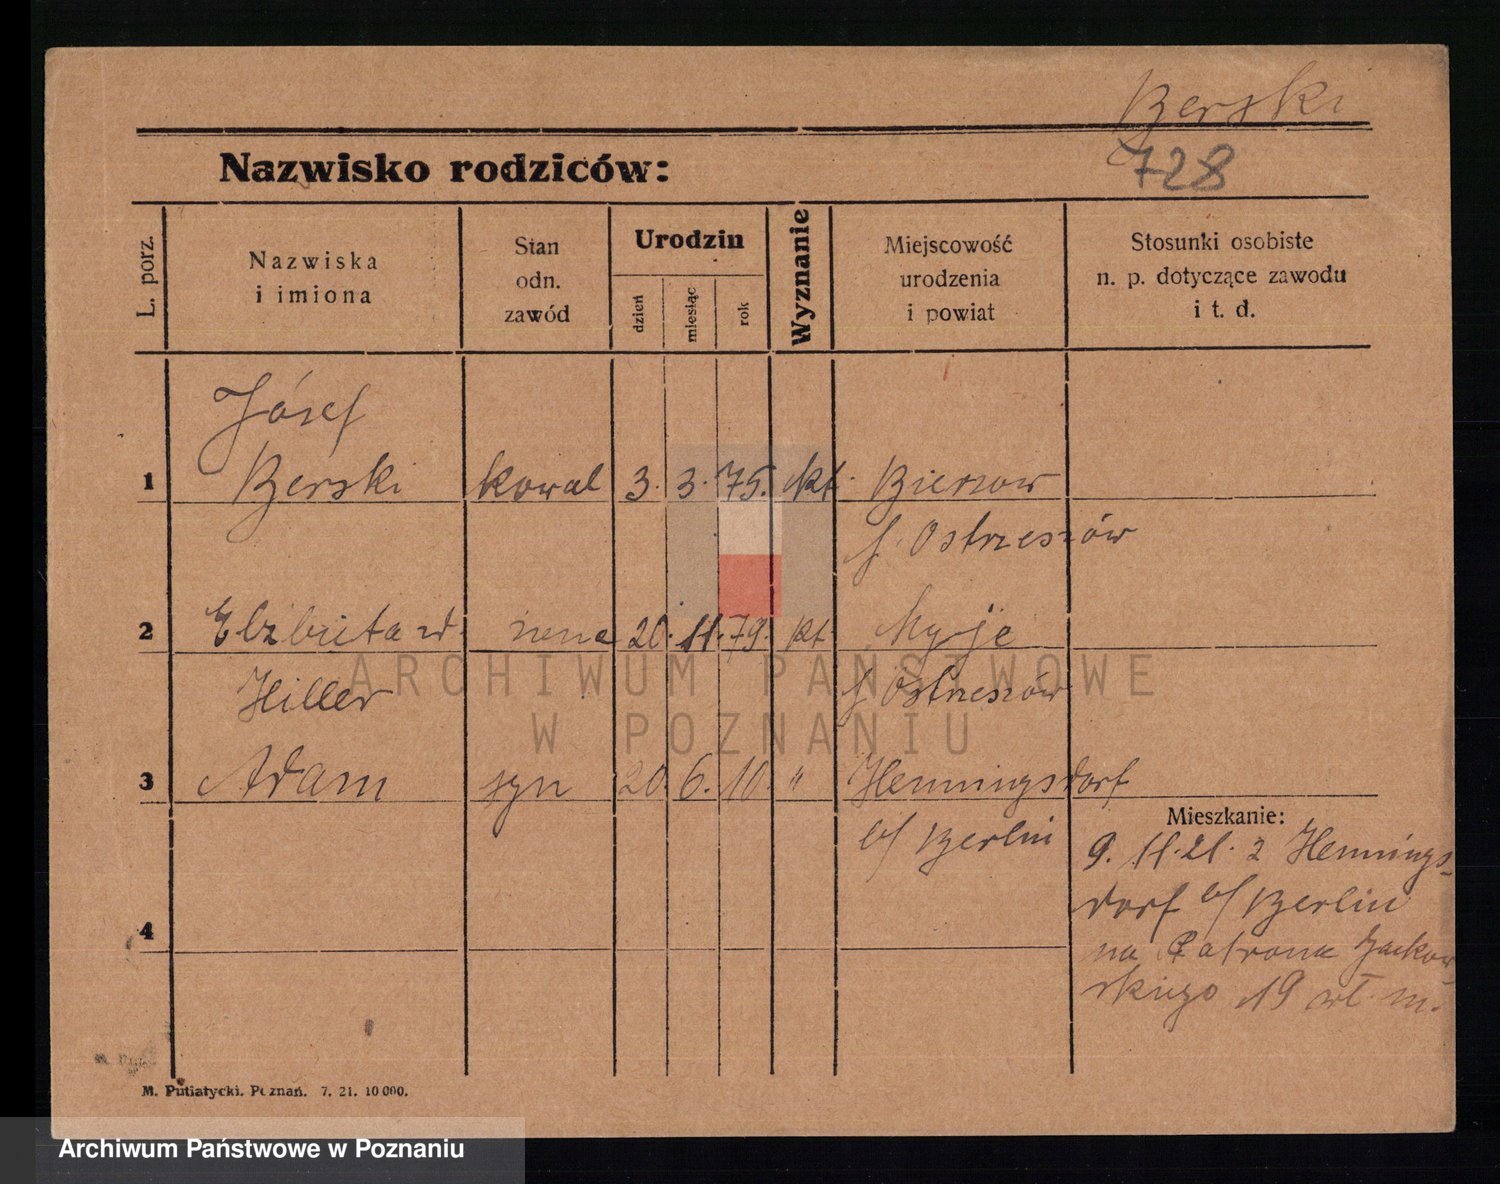 Berski
728
Nazwisko rodziców:
L. porz.
Nazwiska
i imiona
Stan
odn.
zawód
Urodzin
dzień
miesiąc
rok
Wyznanie
Miejscowość
urodzenia
i powiat
Stosunki osobiste
n. p. dotyczące zawodu
i t. d.
Józef
1 Berski kowal 3. 3. 75. kt. Bierzow
f. Ostrzeszów
2 Elzbieta zd. żena 20. 11. 79. kt. Myje
Hiller f Ostrzeszów
3 Adam syn 20. 6. 10. " Henningsdorf
b/ Berlin
Mieszkanie:
9. 11. 21. z Hennings-
dorf b/ Berlin
4
na Patrona Jackow-
skiego 19 wł. m.
M. Putiatycki. Poznań. 7. 21. 10 000.
ARCHIWUM PAŃSTWOWE
W POZNANIU
Archiwum Państwowe w Poznaniu